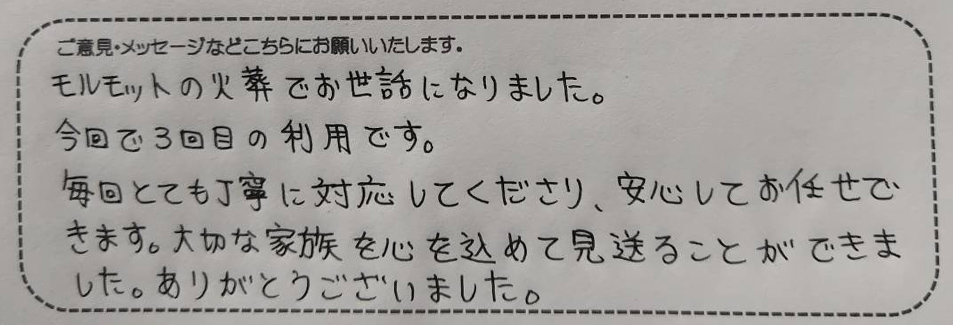 ご意見・メッセージなどこちらにお願いいたします。
モルモットの火葬でお世話になりました。
今回で3回目の利用です。
毎回とても丁寧に対応してくださり、安心してお任せで
きます。大切な家族を心を込めて見送ることができま
した。ありがとうございました。